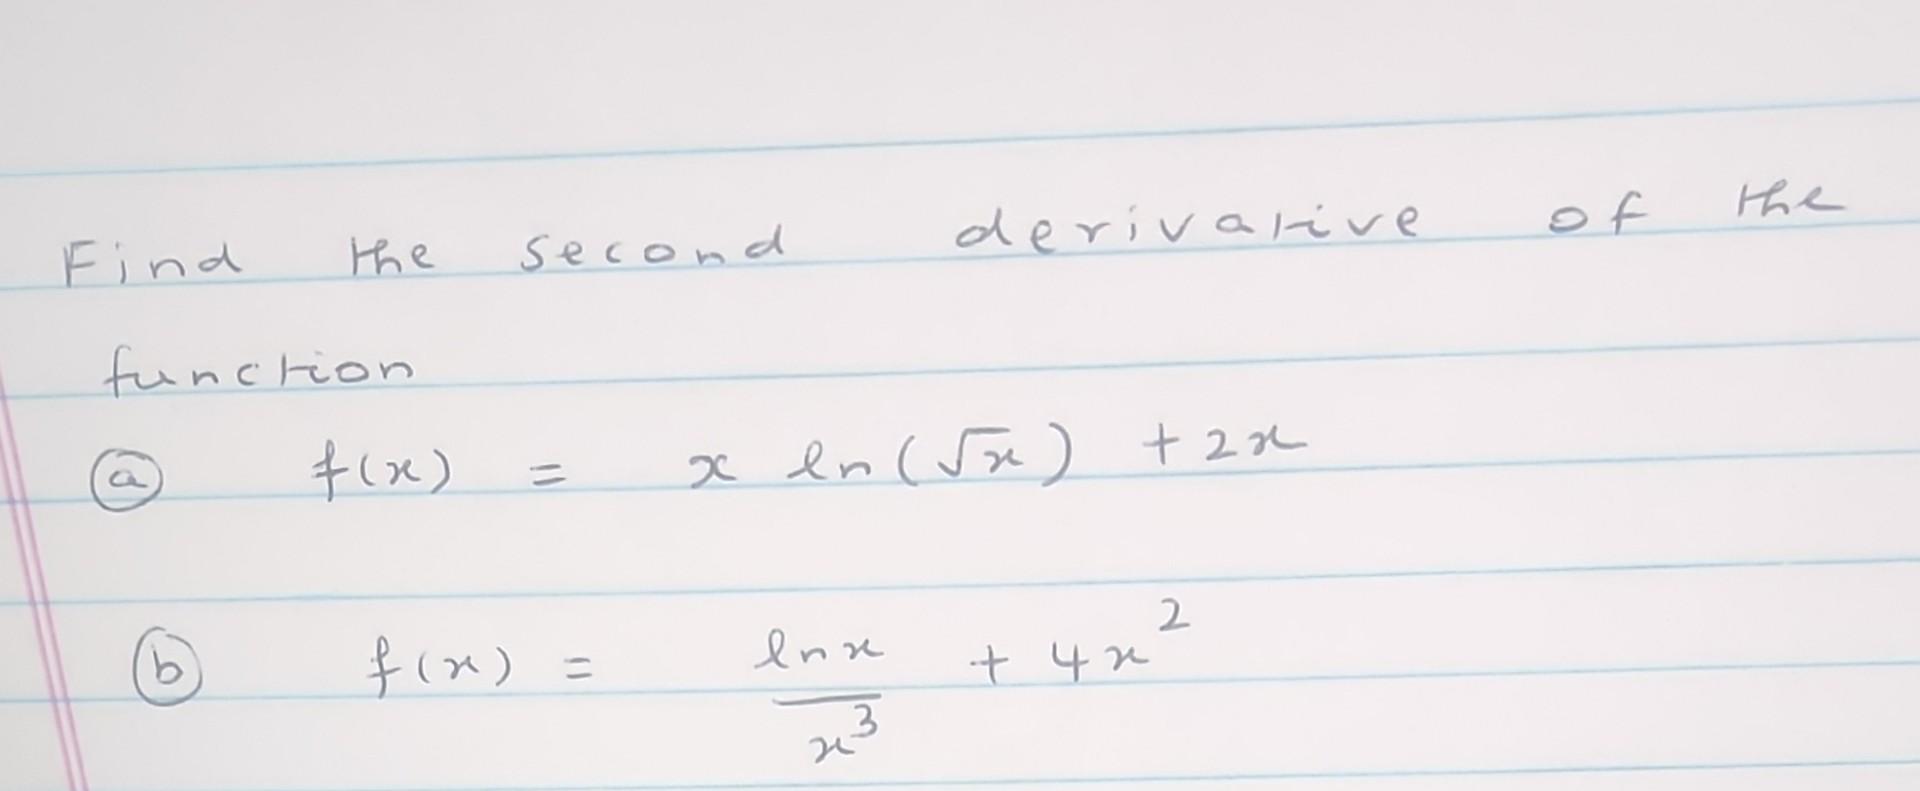 Find the second derivative of the
function
(a) f(x) = x ln(√x) + 2x
(b) f(x) = ln x / x³ + 4x²